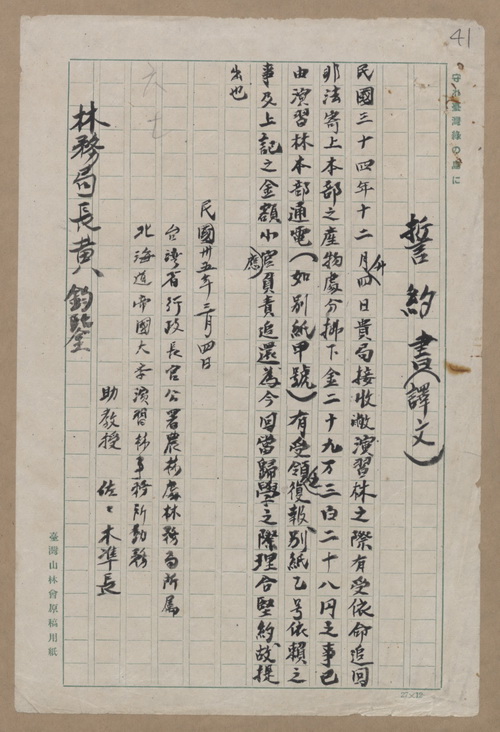 41
守れ臺灣綠の
誓約書(譯文)
民國三十四年十二月四日貴局接收敝演習林之際有受依命追回
非法寄上本部之產物處分拂下金二十九万三百二十八円之事已
由演習林本部通電(如別紙甲號)有受領後報別紙乙号依賴之
事及上記之金額小官應負責追還為今回當歸學之際理合堅約故提
出也
民國卅五年三月四日
台灣省行政長官公署農林處林務局所屬
北海道帝國大学演習林事務所勤務
助教授 佐々木準長
林務局長黃 鈞鑒
臺灣山林會原稿用紙